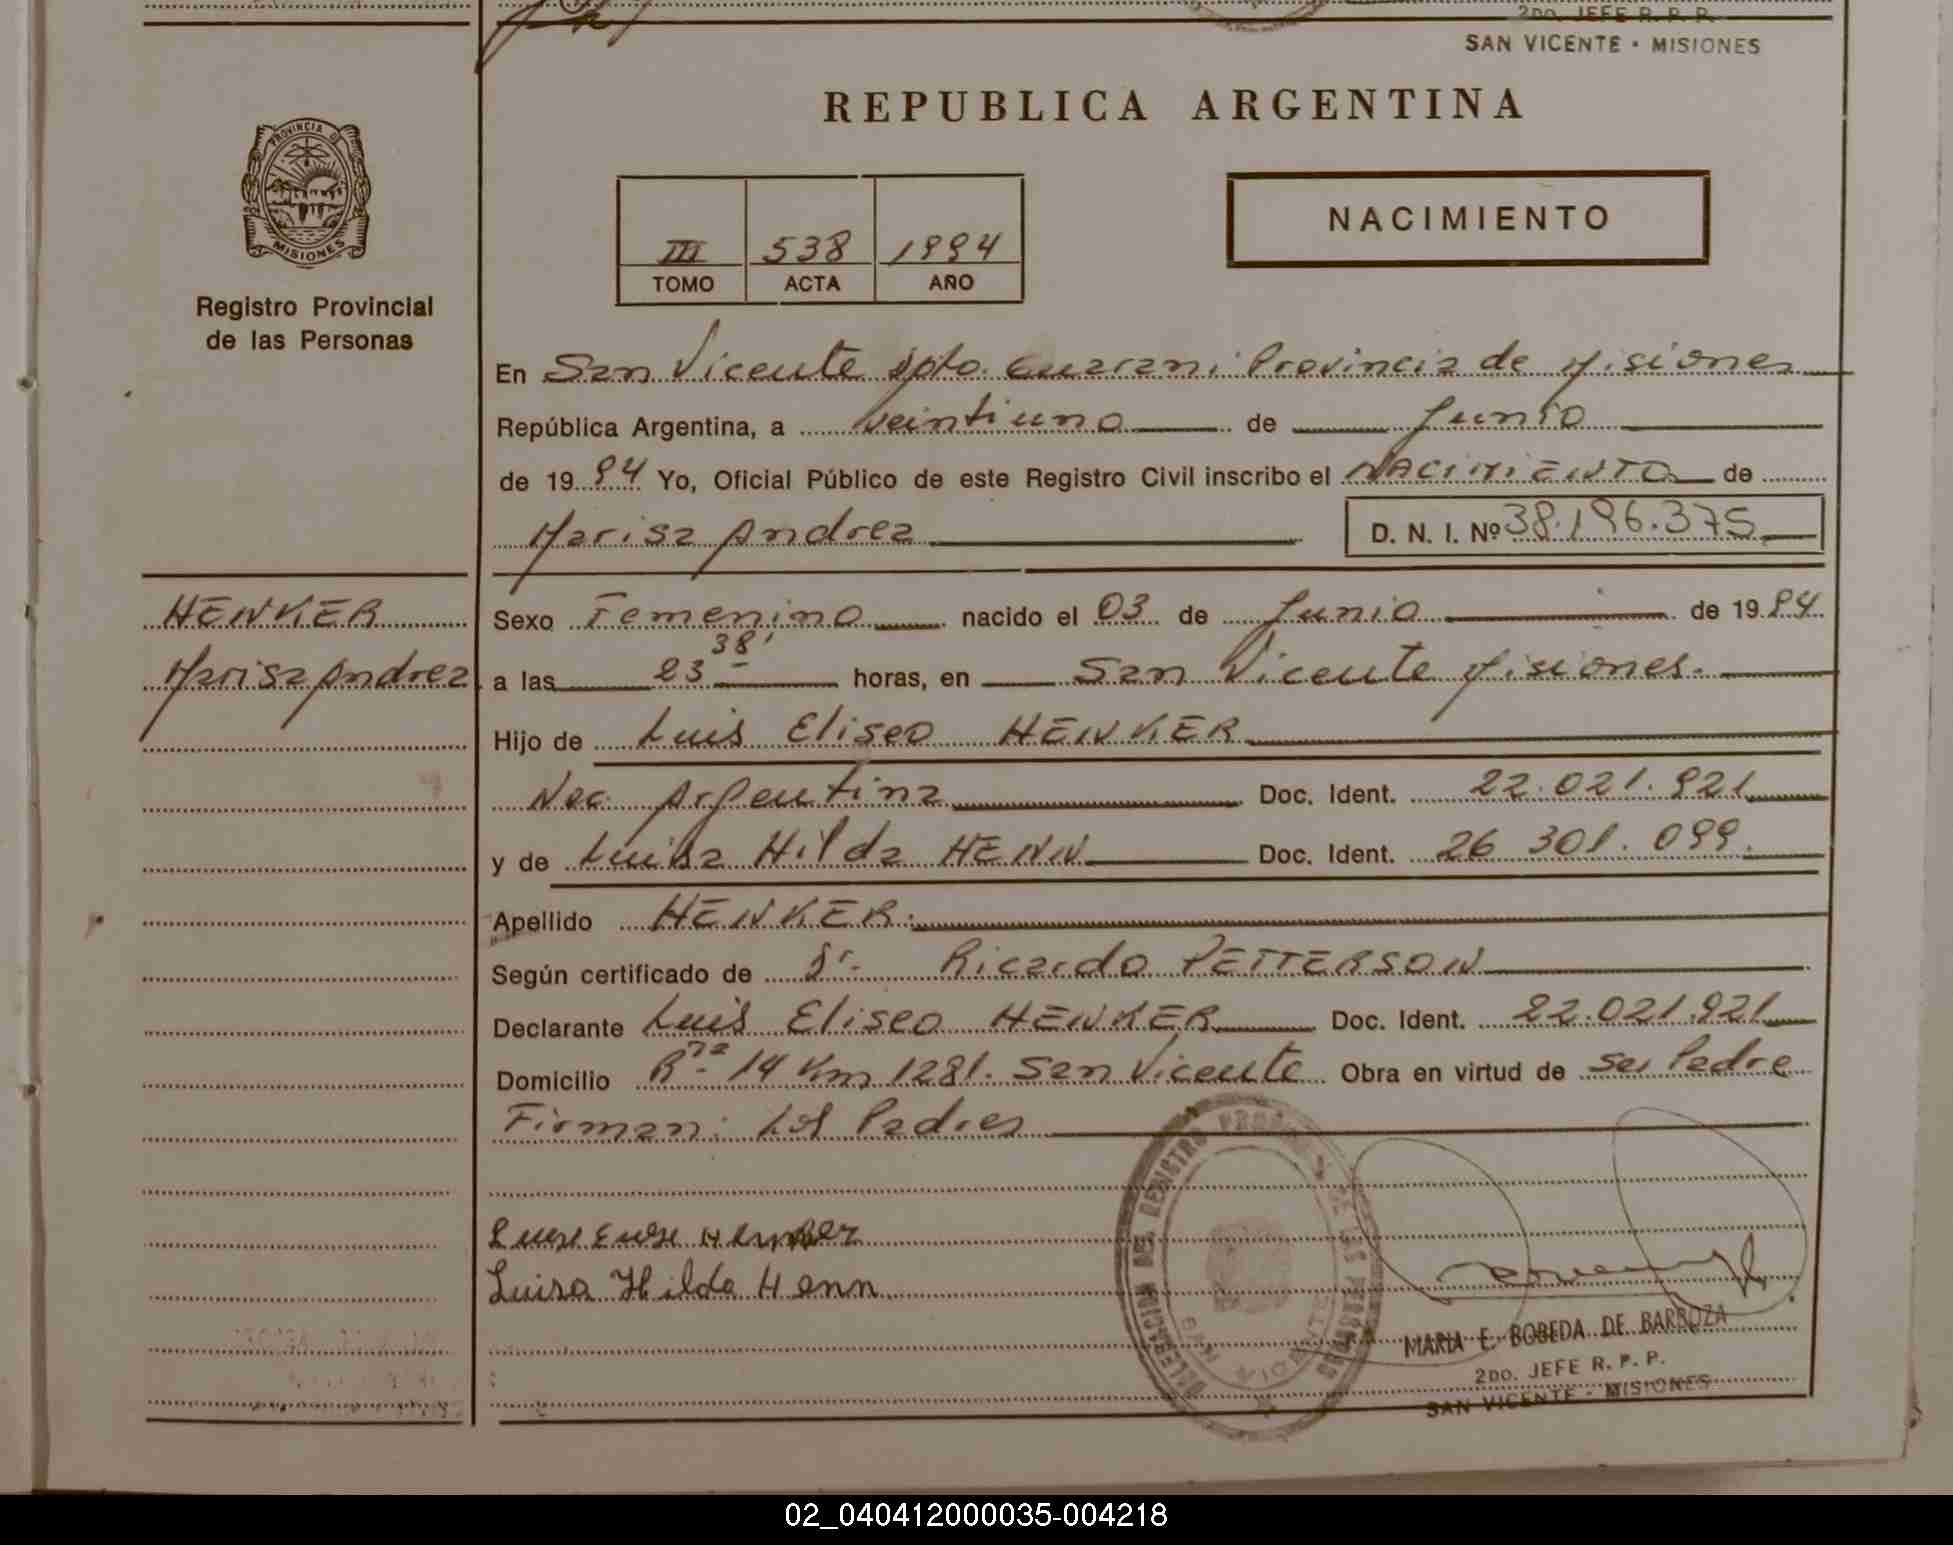 2DO. JEFE R. P. P.
SAN VICENTE - MISIONES
REPUBLICA ARGENTINA
PROVINCIA DE
MISIONES
NACIMIENTO
III 538 1994
TOMO ACTA AÑO
Registro Provincial
de las Personas
En San Vicente Dpto. Guarani Provincia de Misiones
República Argentina, a veintiuno de Junio
de 1994 Yo, Oficial Público de este Registro Civil inscribo el NACIMIENTO de
Marisa Andrea D. N. I. Nº 38.196.375
HENKER
Marisa Andrea
Sexo Femenino nacido el 03 de Junio de 1994
a las 23 38' horas, en San Vicente Misiones.
Hijo de Luis Eliseo HENKER
Nac. Argentina Doc. Ident. 22.021.921
y de Luisa Hilda HENN Doc. Ident. 26 301.099.
Apellido HENKER.
Según certificado de Dr. Ricardo PETTERSON
Declarante Luis Eliseo HENKER Doc. Ident. 22.021.921
Domicilio Rta. 14 Km 1281. San Vicente Obra en virtud de ser Padre
Firman: Los Padres
Luisa Hilda Henn
DELEGACION DEL REGISTRO PROV. DE LAS PERSONAS
MARIA E. BOBEDA DE BARBOZA
2DO. JEFE R. P. P.
SAN VICENTE - MISIONES
02_040412000035-004218